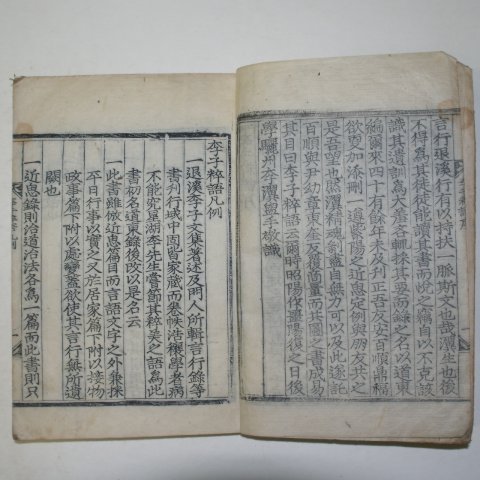 言行退溪行有以特扶一脈斯文也哉瀷生也後
不得爲其徒徒能讀其書而悅之竊自以不克該
識其遺訓爲大羞吝輒採其要而錄之名以道東
編爾來四十有餘年未及刊正吾友安百順鼎福
欲更加添刪一道紫陽之近思與朋友共之
是吾望也然瀷精魂剝盡自無力可以及此遂託
百順與尹幼章東奎反覆商量而共圖之書成易
其目曰李子粹語云爾時昭陽作噩陽復之日後
學驪州李瀷盥手敬識
李子粹語凡例
一退溪李子文集著述及門人所輯言行錄等
書刋行域中固皆家藏而卷帙浩穰學者病
不能究星湖李先生嘗節其粹美之語爲此
書初名道東錄後改以是名云
一此書雖倣近思篇目而言語文字之外兼採
平日行事以實之又於居家篇下附以接物
政事篇下附以處變蓋欲使其言行無所遺
闕也
一近思錄則治道治法各爲一篇而此書則只